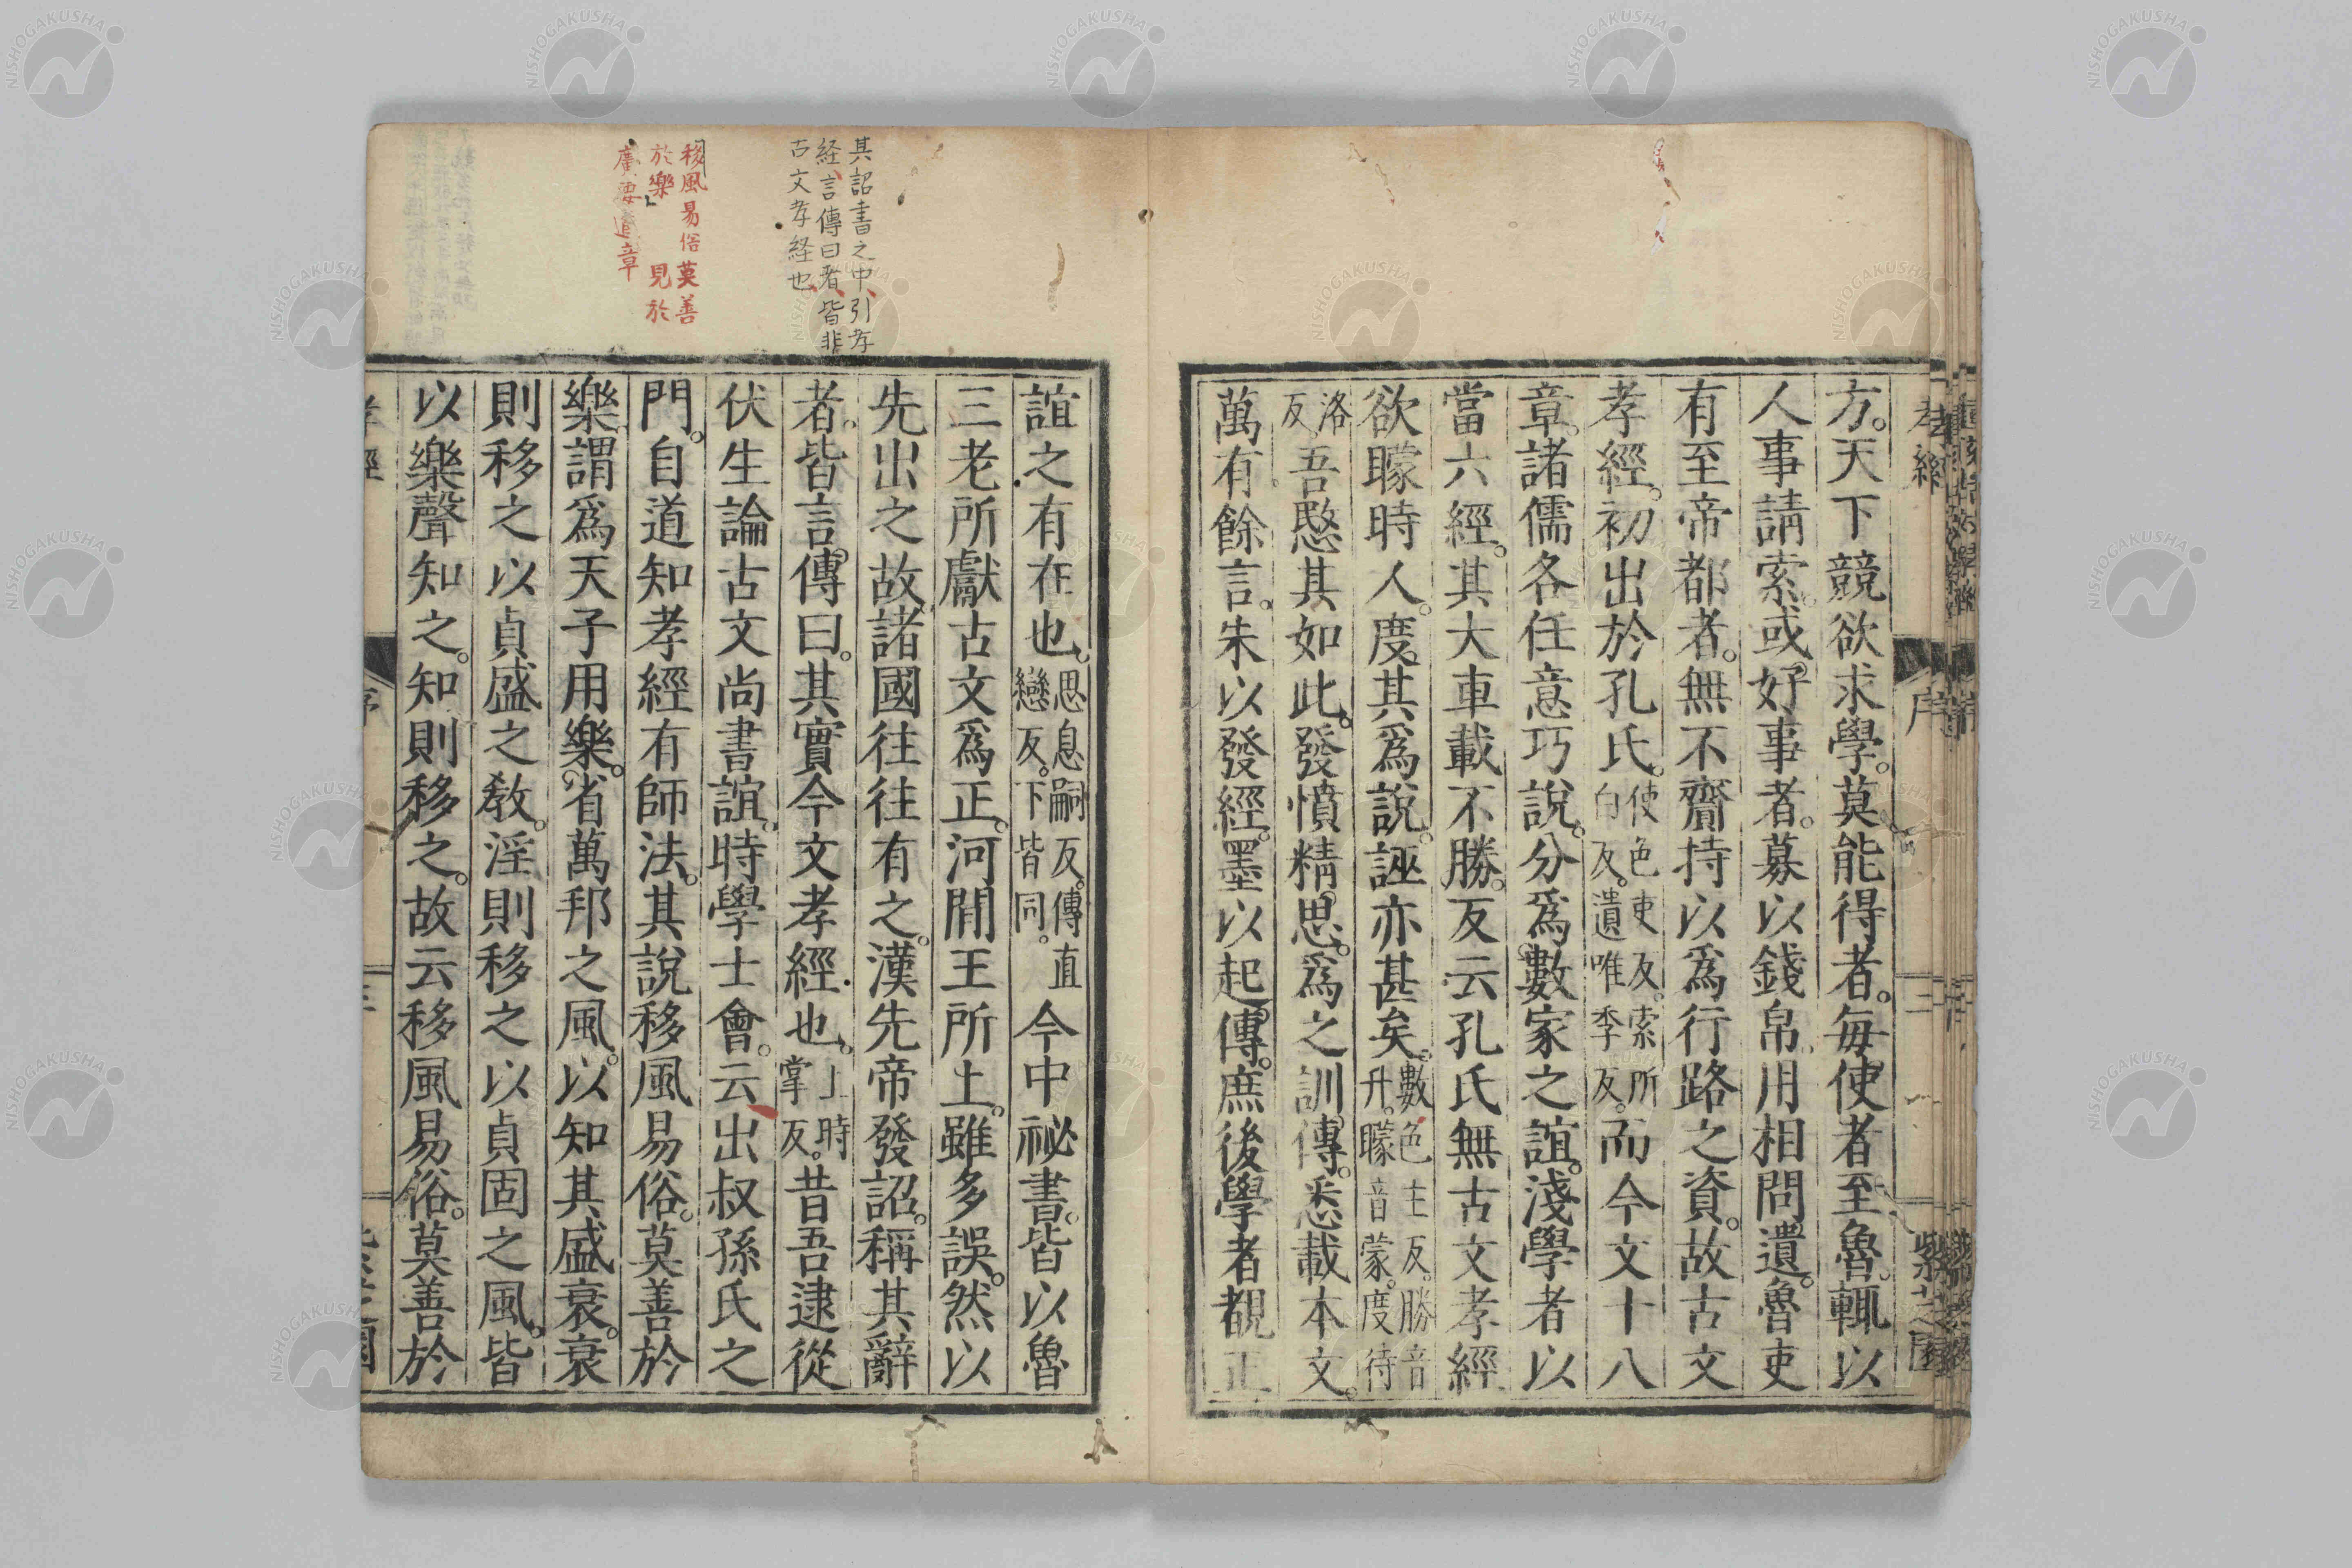 方。天下競欲求學。莫能得者。每使者至魯。輒以
人事請索。或好事者。募以錢帛。用相問遺。魯吏
有至帝都者。無不齎持以爲行路之資。故古文
孝經。初出於孔氏。使色吏反。索所白反。遺唯季反。而今文十八
章。諸儒各任意巧說。分爲數家之誼。淺學者以
當六經。其大車載不勝。反云孔氏無古文孝經
欲矇時人。度其爲說。誣亦甚矣。數色主反。勝音升。矇音蒙。度待
洛反。吾愍其如此。發憤精思。爲之訓傳。悉載本文。
萬有餘言。朱以發經。墨以起傳。庶後學者覩正
誼之有在也。思息嗣反。傳直戀反。下皆同。今中祕書。皆以魯
三老所獻古文爲正。河閒王所上。雖多誤。然以
先出之故。諸國往往有之。漢先帝發詔。稱其辭
者。皆言傳曰。其實今文孝經也。上時掌反。昔吾逮從
伏生論古文尚書誼。時學士會。云出叔孫氏之
門。自道知孝經有師法。其說移風易俗。莫善於
樂。謂爲天子用樂。省萬邦之風。以知其盛衰。衰
則移之以貞盛之教。淫則移之以貞固之風。皆
以樂聲知之。知則移之。故云移風易俗。莫善於
其詔書之中引孝
経言傳曰者皆非
古文孝経也
移風易俗莫善
於樂 見於
廣要道章
孝經
序
三
紫芝園
NISHOGAKUSHA